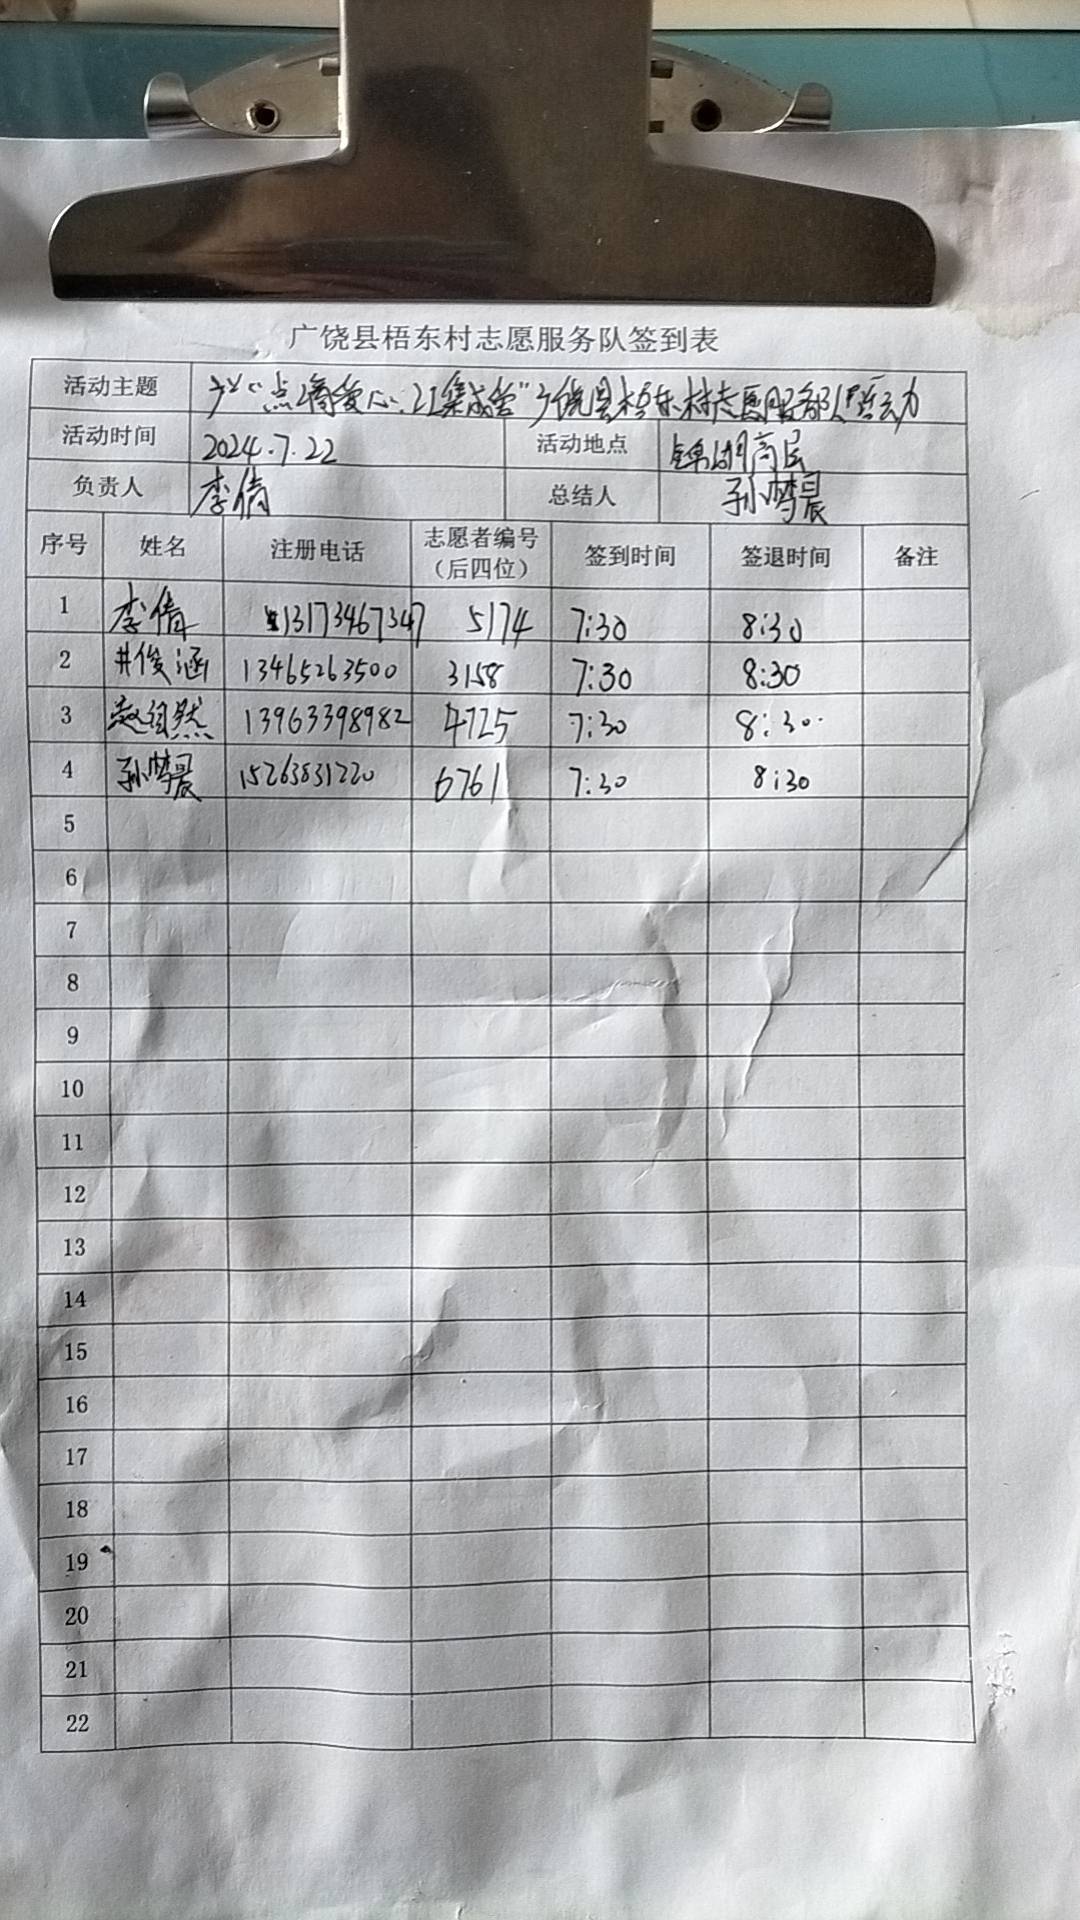 广饶县梧东村志愿服务队签到表
活动主题 "点滴爱心、汇集成爱"广饶县梧东村志愿服务队在行动
活动时间 2024.7.22 活动地点 锦湖高层
负责人 李倩 总结人 孙梦晨
序号 姓名 注册电话 志愿者编号（后四位） 签到时间 签退时间 备注
1 李倩 13173467347 5174 7:30 8:30
2 井俊涵 13465263500 3158 7:30 8:30
3 赵自然 13963398982 4725 7:30 8:30
4 孙梦晨 15263831220 6761 7:30 8:30
5
6
7
8
9
10
11
12
13
14
15
16
17
18
19
20
21
22